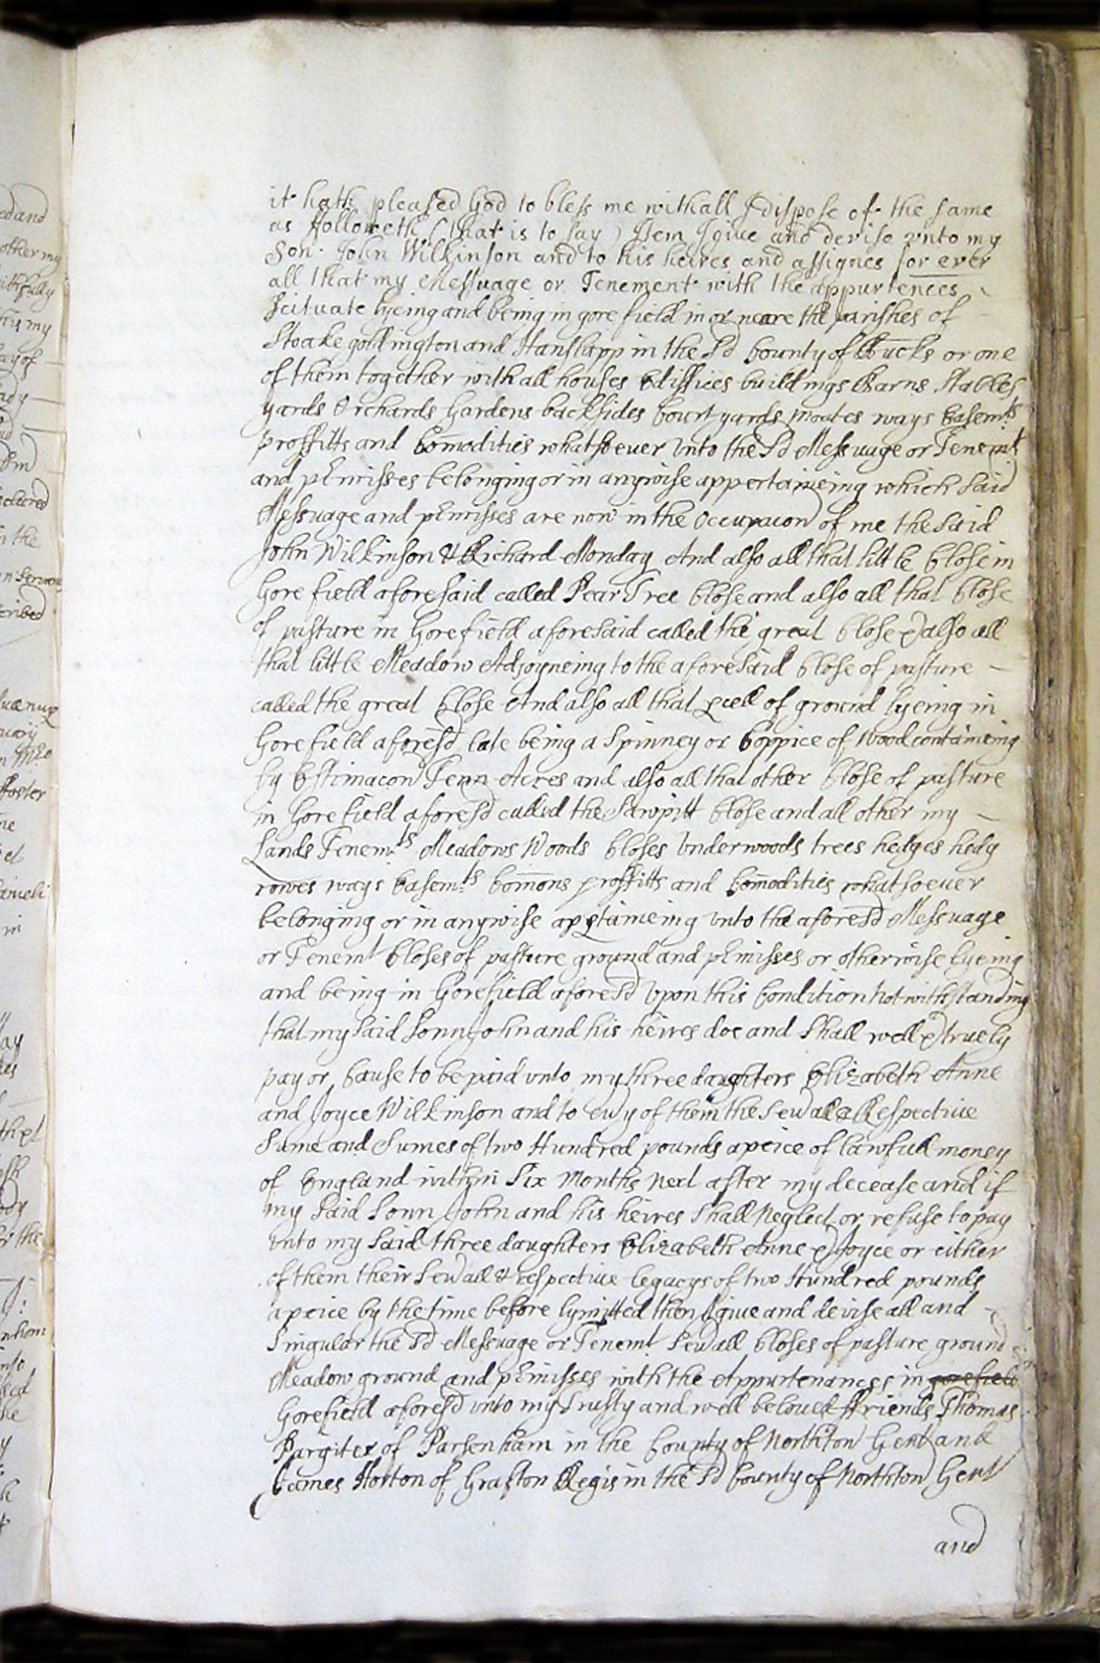 it hath pleased God to bless me withall I dispose of the same
as ffolloweth (that is to say) Item I give and devise unto my
Son John Wilkinson and to his heires and assignes for ever
all that my Messuage or Tenement with the appurtences
Scituate lyeing and being in gore field in or neare the parishes of
Stoake goldington and Hanslapp in the sd County of Bucks or one
of them together with all houses Ediffices buildings Barns Stables
yards Orchards Gardens backsides Court yards moates ways Easemts
proffitts and Comodities whatsoever unto the sd Messuage or Tenemt
and premisses belonging or in anywise appertaineing which said
Messuage and premisses are now in the Occupacon of me the said
John Wilkinson & Richard Monday And also all that little Close in
Gore field aforesaid called Pear Tree Close and also all that Close
of pasture in Gorefield aforesaid called the great Close & also all
that little Meadow Adjoyneing to the aforesaid Close of pasture
called the great Close And also all that pcell of ground lyeing in
Gorefield aforesd late being a Spinney or Coppice of Wood containeing
by Estimacon Tenn Acres and also all that other Close of pasture
in Gorefield aforesd called the Sawpitt Close and all other my
Lands Tenemts Meadows Woods Closes Underwoods trees hedges hedg
rowes ways Easemts Comons proffitts and Comodities whatsoever
belonging or in anywise aptaineing unto the aforesd Messuage
or Tenemt Closes of pasture ground and premisses or otherwise lyeing
and being in Gorefield aforesd Upon this Condition notwithstanding
that my said Sonn John and his heires doe and Shall well & truely
pay or Cause to be paid unto my three daughters Elizabeth Anne
and Joyce Wilkinson and to evy of them the sevall & Respective
Sume and Sumes of two Hundred pounds apeice of lawfull money
of England within Six Months next after my decease and if
my said Sonn John and his heires Shall Neglect or refuse to pay
unto my said three daughters Elizabeth Anne & Joyce or either
of them their sevall & respective legacys of two Hundred pounds
apeice by the time before lymitted then I give and devise all and
Singular the sd Messuage or Tenemt sevall Closes of pasture ground
Meadow ground and premisses with the Appurtenances in gorefield
Gorefield aforesd unto my Trusty and well beloved ffriends Thomas
Pargiter of Parsenham in the County of Northton Gent and
James Horton of Grafton Regis in the sd County of Northton Gent
and